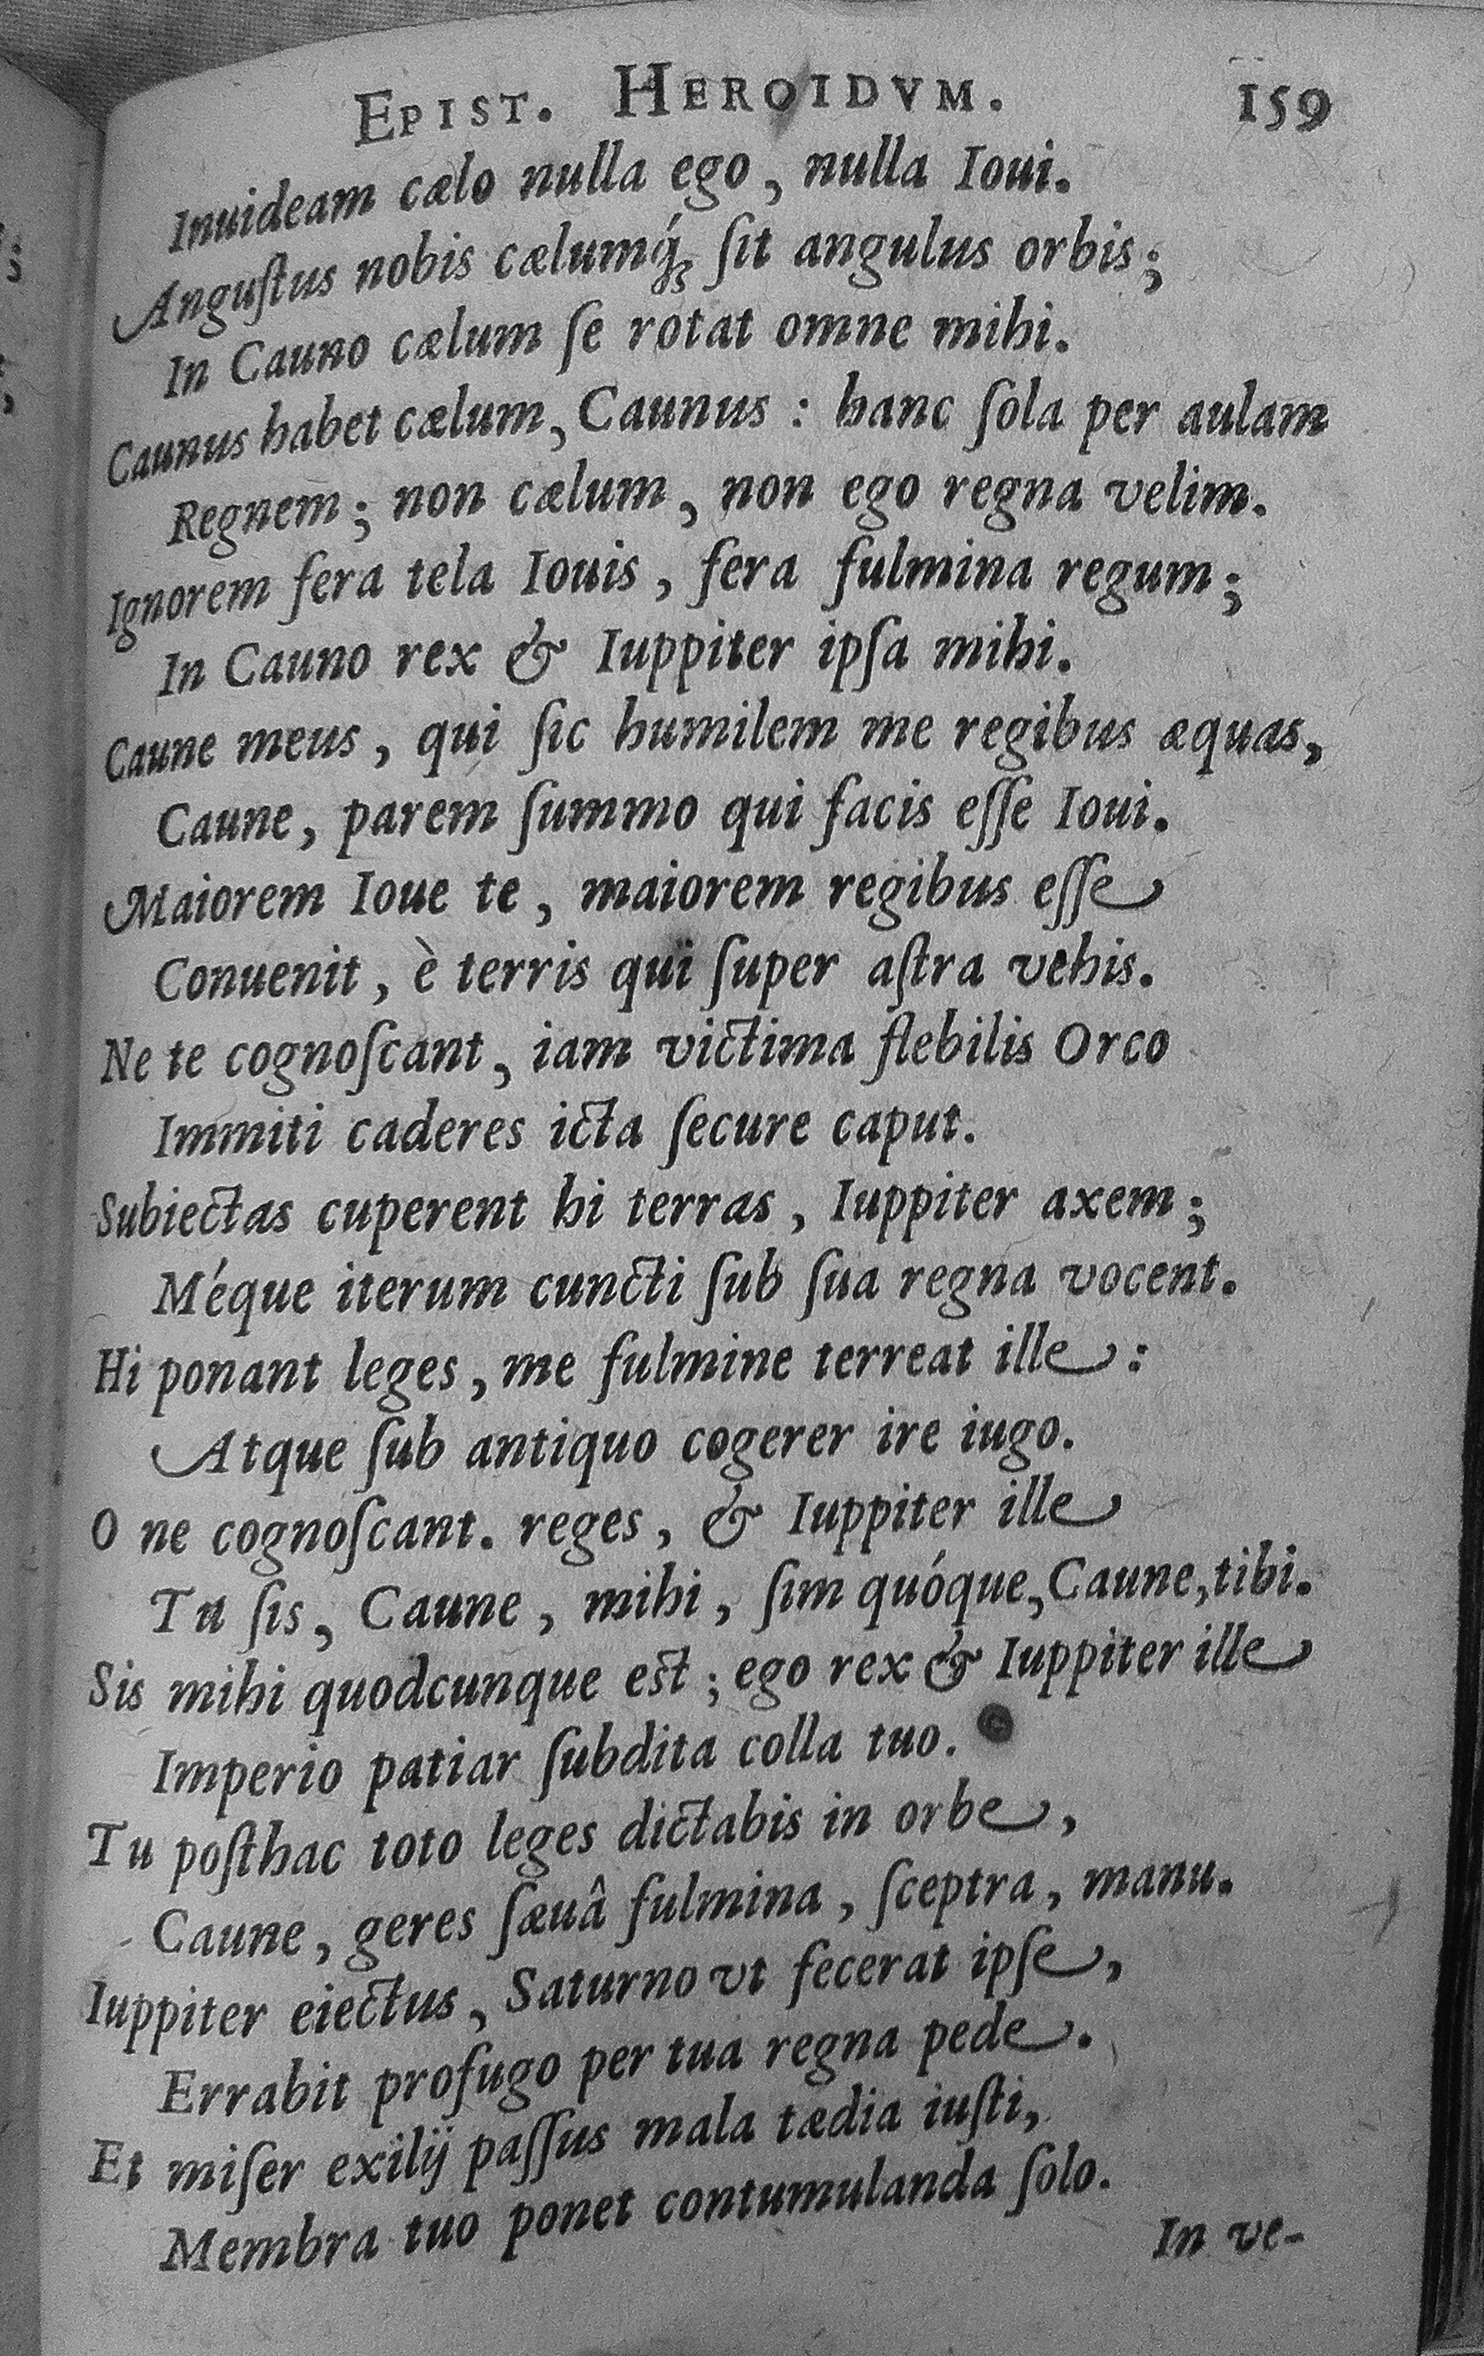 EPIST. HEROIDVM. 159
Inuideam cælo nulla ego, nulla Ioui.
Anguſtus nobis cælumq́ꝫ ſit angulus orbis;
In Cauno cælum ſe rotat omne mihi.
Caunus habet cælum, Caunus : hanc ſola per aulam
Regnem; non cælum, non ego regna velim.
Ignorem fera tela Iouis, fera fulmina regum;
In Cauno rex & Iuppiter ipſa mihi.
Caune meus, qui ſic humilem me regibus æquas,
Caune, parem ſummo qui facis eſſe Ioui.
Maiorem Ioue te, maiorem regibus eſſe
Conuenit, è terris qui ſuper aſtra vehis.
Ne te cognoſcant, iam victima flebilis Orco
Immiti caderes icta ſecure caput.
Subiectas cuperent hi terras, Iuppiter axem;
Méque iterum cuncti ſub ſua regna vocent.
Hi ponant leges, me fulmine terreat ille:
Atque ſub antiquo cogerer ire iugo.
O ne cognoſcant. reges, & Iuppiter ille
Tu ſis, Caune, mihi, ſim quóque, Caune, tibi.
Sis mihi quodcunque est; ego rex & Iuppiter ille
Imperio patiar ſubdita colla tuo.
Tu poſthac toto leges dictabis in orbe,
Caune, geres ſæuâ fulmina, ſceptra, manu.
Iuppiter eiectus, Saturno vt fecerat ipſe,
Errabit profugo per tua regna pede.
Et miſer exilij paſſus mala tædia iuſti,
Membra tuo ponet contumulanda ſolo.
In ve-